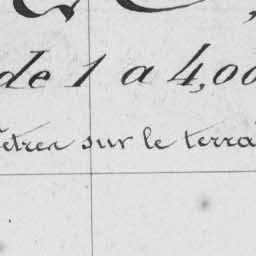 de 1 a 4,00
etres sur le terra